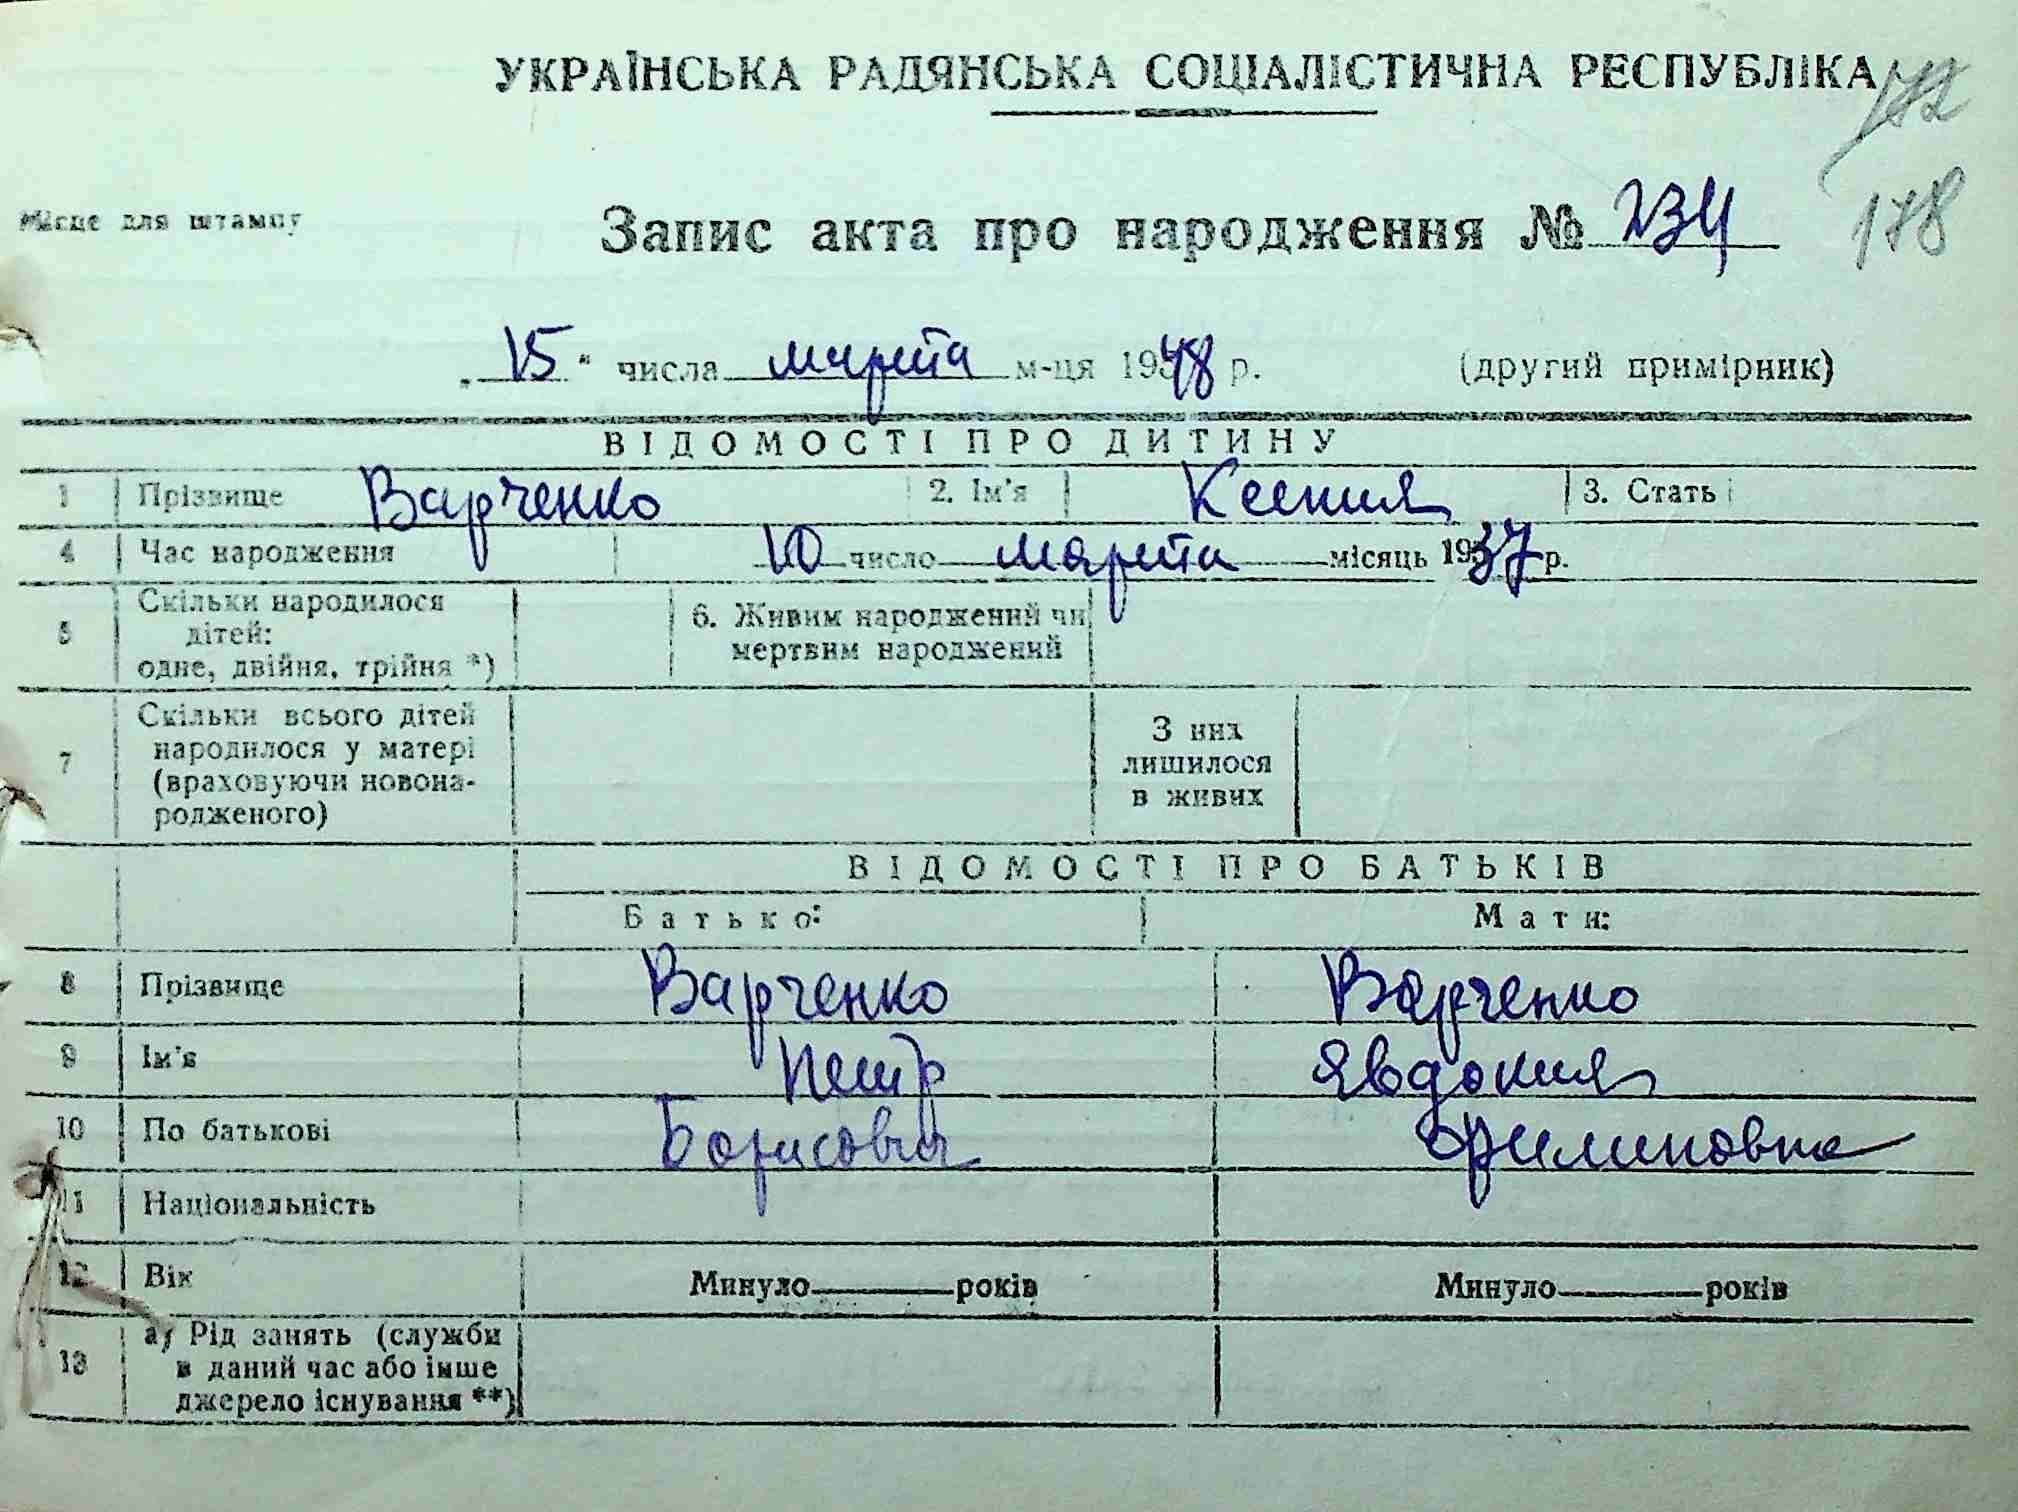 УКРАЇНСЬКА РАДЯНСЬКА СОЦІАЛІСТИЧНА РЕСПУБЛІКА
178
Місце для штампу
Запис акта про народження № 234
„15" числа марта м-ця 1948 р. (другий примірник)
ВІДОМОСТІ ПРО ДИТИНУ
1 Прізвище Варченко 2. Ім'я Ксения 3. Стать
4 Час народження 10 число марта місяць 1937 р.
5 Скільки народилося
дітей:
одне, двійня, трійня *)
6. Живим народжений чи
мертвим народжений
7 Скільки всього дітей
народилося у матері
(враховуючи новона-
родженого)
З них
лишилося
в живих
ВІДОМОСТІ ПРО БАТЬКІВ
Батько: Мати:
8 Прізвище Варченко Варченко
9 Ім'я Петр Явдокия
10 По батькові Борисович Филиповна
11 Національність
12 Вік Минуло років Минуло років
13 а) Рід занять (служби
в даний час або інше
джерело існування **)